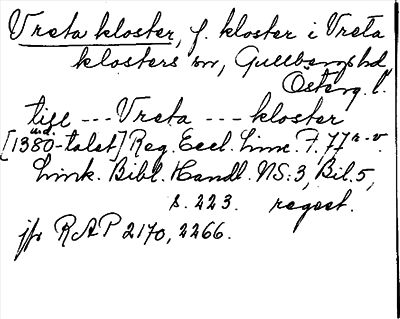 Vreta kloster, f. kloster i Vreta
klosters sn, Gullbergs hd,
Österg. l.
tise --- Vreta --- kloster
[1380-talet] Reg. Eccl. Linc. F. 77 r-v.
Link. Bibl. Handl. NS: 3, Bil. 5,
s. 223. regest.
jfr RAP 2170, 2266.